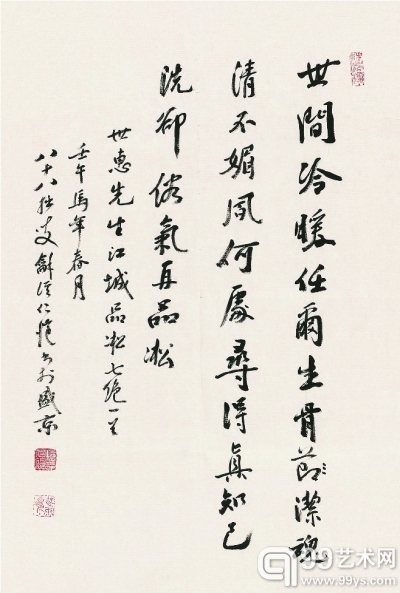 世間冷暖任爾生骨節潔魂
清不媚風何處尋得真知己
洗卻俗氣再品凇
世惠先生江城品凇七绝一首
壬午馬年春月
八十八拙叟龢溪仁愷書於盛京
99艺术网
www.99ys.com